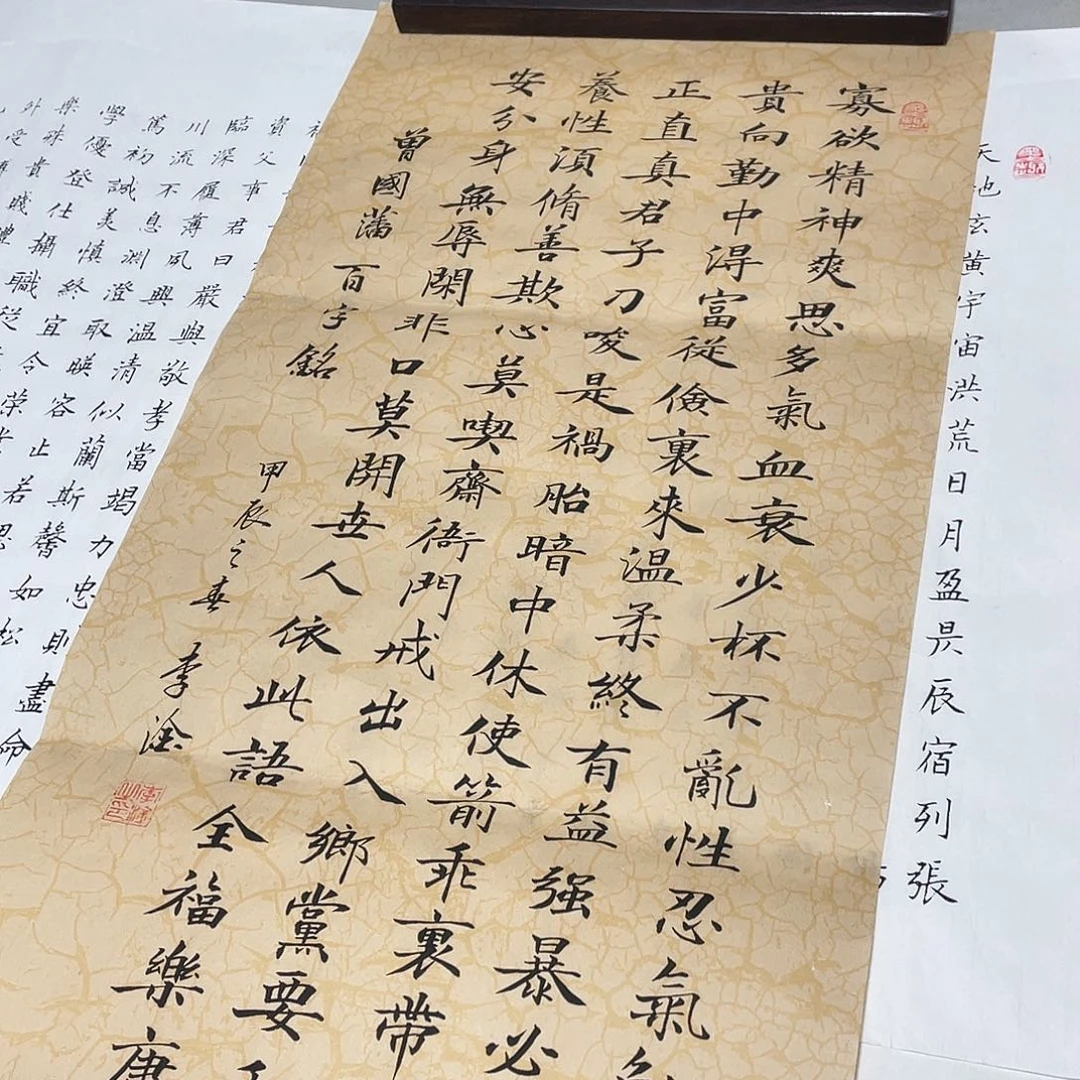 天地玄黄宇宙洪荒日月盈昃辰宿列張
寡欲精神爽思多氣血衰少杯不亂性忍氣
貴向勤中得富從儉裏來温柔終有益强暴必
正直真君子刀唆是禍胎暗中休使箭乖裏帶
養性須脩善欺心莫喫齋衙門戒出入鄉黨要
安分身無辱閑非口莫開世人依此語全福樂康
曾國藩百字銘
甲辰之春李淦
資父事君曰嚴與敬孝當竭力忠則盡命
臨深履薄夙興温清似蘭斯馨如松
川流不息淵澄取暎容止若思
篤初誠美慎終宜令榮
學優登仕攝職從
樂殊貴賤禮
外受